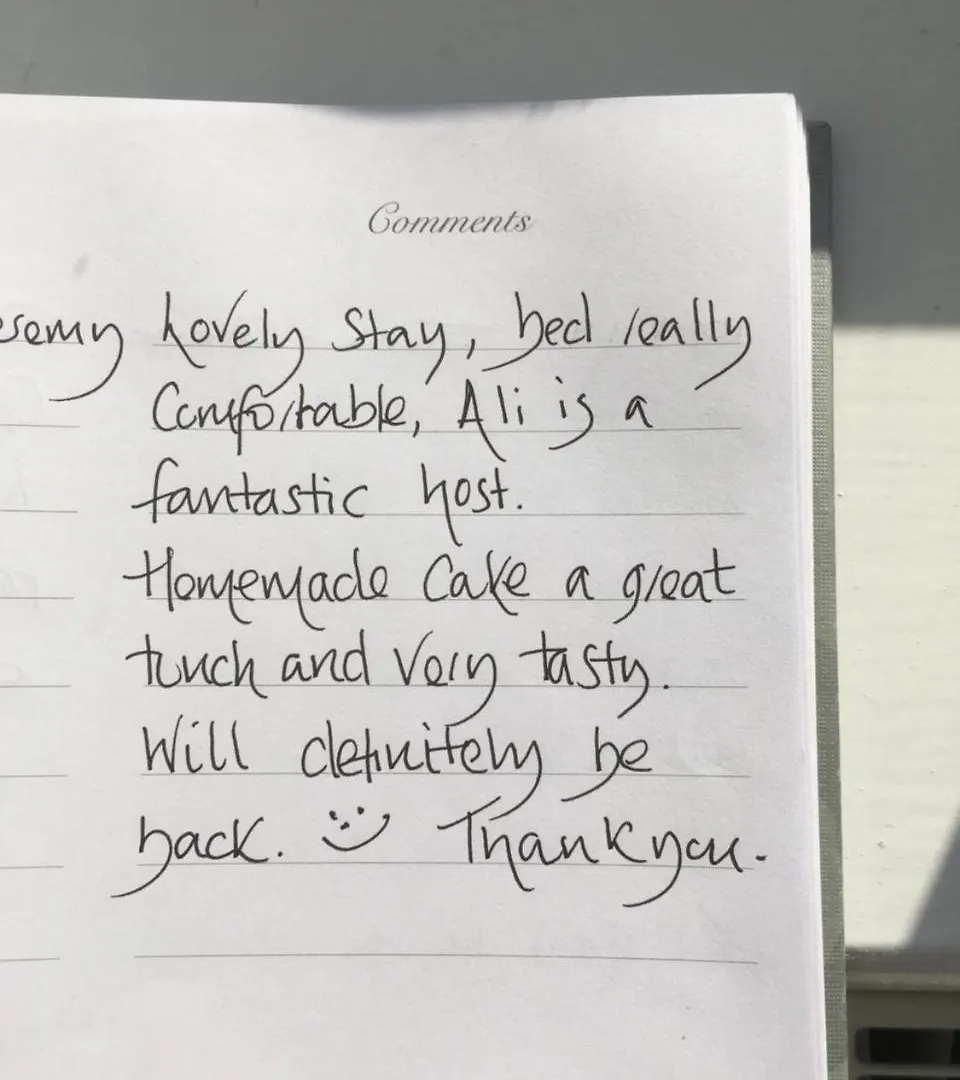 Comments
Lovely Stay, bed really
Comfortable, Ali is a
fantastic host.
Homemade Cake a great
touch and very tasty.
Will definitely be
back. :) Thankyou.